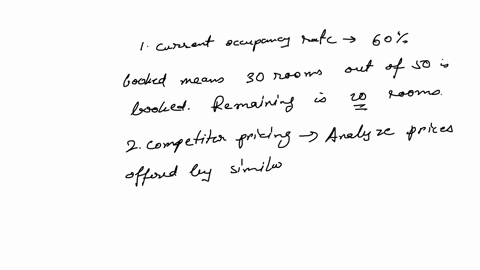 1. current occupancy rate → 60%
booked means 30 rooms out of 50 is
booked. Remaining is 20 rooms.
2. competitor pricing → Analyze prices
offered by similar